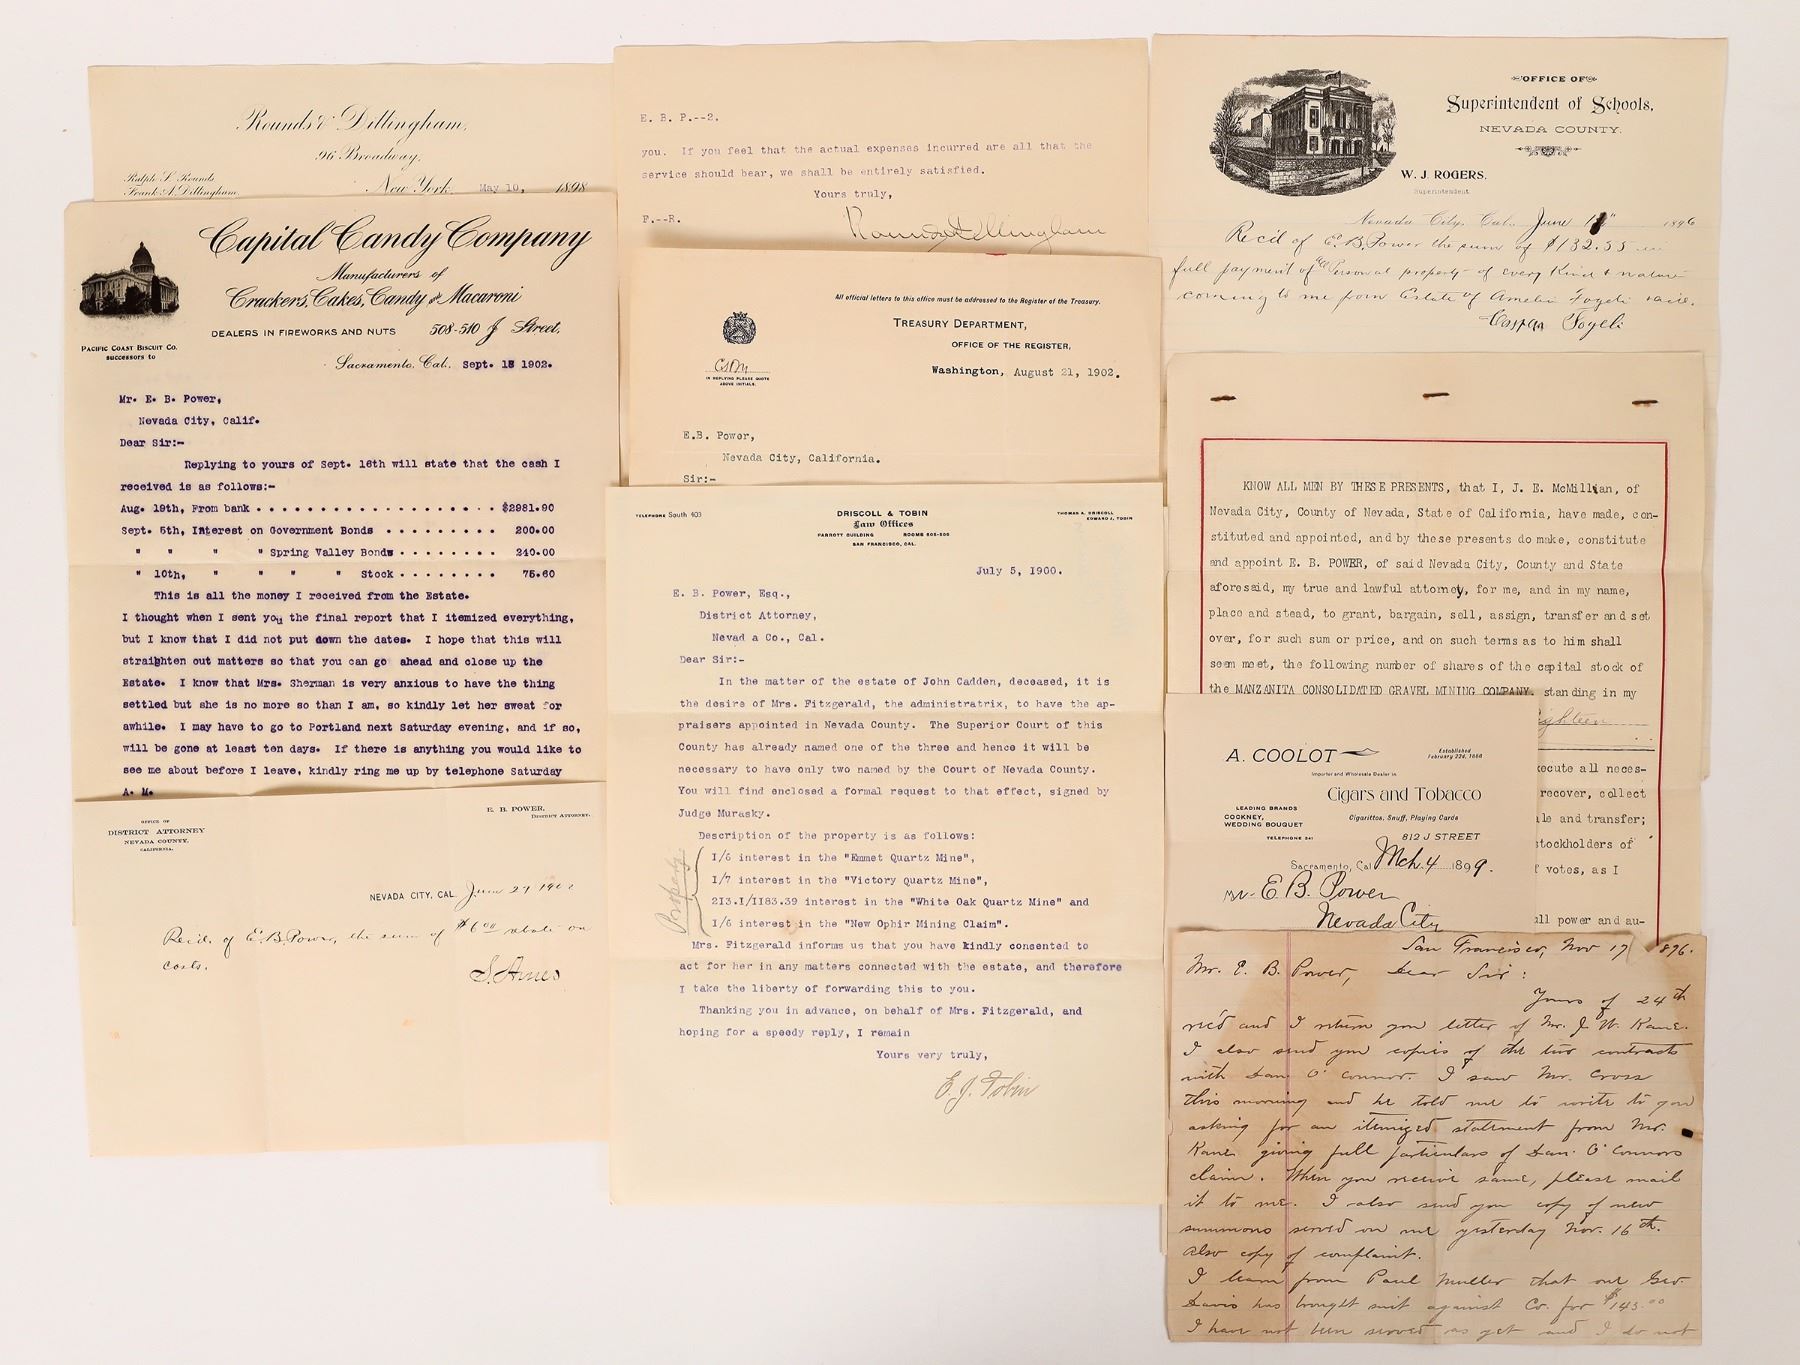 Rounds & Dillingham,
96 Broadway,
Ralph S. Rounds
Frank A. Dillingham.
New York, May 10, 1898
Capital Candy Company
Manufacturers of
Crackers, Cakes, Candy and Macaroni
DEALERS IN FIREWORKS AND NUTS 508-510 J Street,
PACIFIC COAST BISCUIT CO.
successors to
Sacramento, Cal., Sept. 18 1902.
Mr. E. B. Power,
Nevada City, Calif.
Dear Sir:-
Replying to yours of Sept. 16th will state that the cash I
received is as follows:-
Aug. 19th, From bank . . . . . . . . . . . . . . . . . . . $2981.90
Sept. 5th, Interest on Government Bonds . . . . . . . . . 200.00
" " " " Spring Valley Bonds . . . . . . . . 240.00
" 10th, " " " " Stock . . . . . . . . 75.60
This is all the money I received from the Estate.
I thought when I sent you the final report that I itemized everything,
but I know that I did not put down the dates. I hope that this will
straighten out matters so that you can go ahead and close up the
Estate. I know that Mrs. Sherman is very anxious to have the thing
settled but she is no more so than I am, so kindly let her sweat for
awhile. I may have to go to Portland next Saturday evening, and if so,
will be gone at least ten days. If there is anything you would like to
see me about before I leave, kindly ring me up by telephone Saturday
A. M.
OFFICE OF
DISTRICT ATTORNEY
NEVADA COUNTY,
CALIFORNIA.
E. B. POWER,
DISTRICT ATTORNEY.
NEVADA CITY, CAL. June 27 1902
Rec'd. of E. B. Power, the sum of $6.00 rebate on
costs.
S. Ames
E. B. P.--2.
you. If you feel that the actual expenses incurred are all that the
service should bear, we shall be entirely satisfied.
Yours truly,
F.--R.
Rounds & Dillingham
All official letters to this office must be addressed to the Register of the Treasury.
TREASURY DEPARTMENT,
OFFICE OF THE REGISTER,
IN REPLYING PLEASE QUOTE
ABOVE INITIALS.
Washington, August 21, 1902.
E.B. Power,
Nevada City, California.
Sir:-
TELEPHONE South 403
DRISCOLL & TOBIN
Law Offices
PARROTT BUILDING ROOMS 505-506
SAN FRANCISCO, CAL.
THOMAS A. DRISCOLL
EDWARD J. TOBIN
July 5, 1900.
E. B. Power, Esq.,
District Attorney,
Nevad a Co., Cal.
Dear Sir:-
In the matter of the estate of John Cadden, deceased, it is
the desire of Mrs. Fitzgerald, the administratrix, to have the ap-
praisers appointed in Nevada County. The Superior Court of this
County has already named one of the three and hence it will be
necessary to have only two named by the Court of Nevada County.
You will find enclosed a formal request to that effect, signed by
Judge Murasky.
Description of the property is as follows:
1/6 interest in the "Emmet Quartz Mine",
1/7 interest in the "Victory Quartz Mine",
213.1/1183.39 interest in the "White Oak Quartz Mine" and
1/6 interest in the "New Ophir Mining Claim".
Property
Mrs. Fitzgerald informs us that you have kindly consented to
act for her in any matters connected with the estate, and therefore
I take the liberty of forwarding this to you.
Thanking you in advance, on behalf of Mrs. Fitzgerald, and
hoping for a speedy reply, I remain
Yours very truly,
E. J. Tobin
OFFICE OF
Superintendent of Schools,
NEVADA COUNTY.
W. J. ROGERS,
Superintendent.
Nevada City, Cal., June 1896
Rec'd of E. B. Power the sum of $132.55 in
full payment of all Personal property of every Kind & nature
coming to me from Estate of Amelia Fogeli
Caspar Fogeli
KNOW ALL MEN BY THESE PRESENTS, that I, J. E. McMillan, of
Nevada City, County of Nevada, State of California, have made, con-
stituted and appointed, and by these presents do make, constitute
and appoint E. B. POWER, of said Nevada City, County and State
aforesaid, my true and lawful attorney, for me, and in my name,
place and stead, to grant, bargain, sell, assign, transfer and set
over, for such sum or price, and on such terms as to him shall
seem meet, the following number of shares of the capital stock of
the MANZANITA CONSOLIDATED GRAVEL MINING COMPANY, standing in my
Eighteen
xecute all neces-
recover, collect
le and transfer;
stockholders of
f votes, as I
all power and au-
A. COOLOT
Established
February 22d, 1866
Importer and Wholesale Dealer in
Cigars and Tobacco
LEADING BRANDS
COCKNEY,
WEDDING BOUQUET
Cigarittos, Snuff, Playing Cards
TELEPHONE 241
812 J STREET
Sacramento, Cal Mch. 4 1899.
Mr E. B. Power
Nevada City
San Francisco, Nov 17 1896.
Mr. E. B. Power, Dear Sir:
Yours of 24th
rec'd and I return you letter of Mr. J. W. Kane.
I also send you copies of the two contracts
with Dan O'Connor. I saw Mr. Cross
this morning and he told me to write to you
asking for an itemized statement from Mr.
Kane giving full particulars of Dan O'Connors
claim. When you receive same, please mail
it to me. I also send you copy of new
summons served on me yesterday Nov. 16th.
Also copy of complaint.
I learn from Paul Muller that one Geo.
Davis has brought suit against Co. for $143.00
I have not been served as yet and I do not